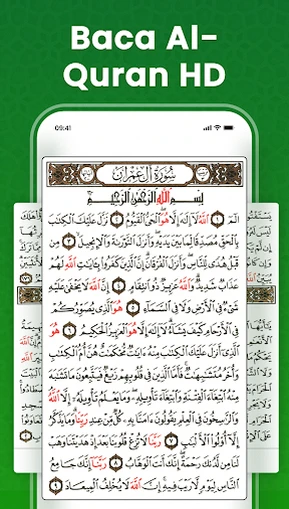 Baca Al-
Quran HD
09:41
سُورَةُ آلِ عِمْرَانَ
بِسْمِ ٱللَّهِ ٱلرَّحْمَٰنِ ٱلرَّحِيمِ
الٓمٓ ١ ٱللَّهُ لَآ إِلَٰهَ إِلَّا هُوَ ٱلْحَىُّ ٱلْقَيُّومُ ٢ نَزَّلَ عَلَيْكَ ٱلْكِتَٰبَ
بِٱلْحَقِّ مُصَدِّقًا لِّمَا بَيْنَ يَدَيْهِ وَأَنزَلَ ٱلتَّوْرَىٰةَ وَٱلْإِنجِيلَ ٣ مِن
قَبْلُ هُدًى لِّلنَّاسِ وَأَنزَلَ ٱلْفُرْقَانَ إِنَّ ٱلَّذِينَ كَفَرُوا۟ بِـَٔايَٰتِ ٱللَّهِ لَهُمْ
عَذَابٌ شَدِيدٌ وَٱللَّهُ عَزِيزٌ ذُو ٱنتِقَامٍ ٤ إِنَّ ٱللَّهَ لَا يَخْفَىٰ عَلَيْهِ
شَىْءٌ فِى ٱلْأَرْضِ وَلَا فِى ٱلسَّمَآءِ ٥ هُوَ ٱلَّذِى يُصَوِّرُكُمْ
فِى ٱلْأَرْحَامِ كَيْفَ يَشَآءُ لَآ إِلَٰهَ إِلَّا هُوَ ٱلْعَزِيزُ ٱلْحَكِيمُ ٦ هُوَ
ٱلَّذِىٓ أَنزَلَ عَلَيْكَ ٱلْكِتَٰبَ مِنْهُ ءَايَٰتٌ مُّحْكَمَٰتٌ هُنَّ أُمُّ ٱلْكِتَٰبِ
وَأُخَرُ مُتَشَٰبِهَٰتٌ فَأَمَّا ٱلَّذِينَ فِى قُلُوبِهِمْ زَيْغٌ فَيَتَّبِعُونَ مَا تَشَٰبَهَ
مِنْهُ ٱبْتِغَآءَ ٱلْفِتْنَةِ وَٱبْتِغَآءَ تَأْوِيلِهِۦ وَمَا يَعْلَمُ تَأْوِيلَهُۥٓ إِلَّا ٱللَّهُ
وَٱلرَّٰسِخُونَ فِى ٱلْعِلْمِ يَقُولُونَ ءَامَنَّا بِهِۦ كُلٌّ مِّنْ عِندِ رَبِّنَا وَمَا يَذَّكَّرُ
إِلَّآ أُو۟لُوا۟ ٱلْأَلْبَٰبِ ٧ رَبَّنَا لَا تُزِغْ قُلُوبَنَا بَعْدَ إِذْ هَدَيْتَنَا وَهَبْ
لَنَا مِن لَّدُنكَ رَحْمَةً إِنَّكَ أَنتَ ٱلْوَهَّابُ ٨ رَبَّنَآ إِنَّكَ جَامِعُ
ٱلنَّاسِ لِيَوْمٍ لَّا رَيْبَ فِيهِ إِنَّ ٱللَّهَ لَا يُخْلِفُ ٱلْمِيعَادَ ٩